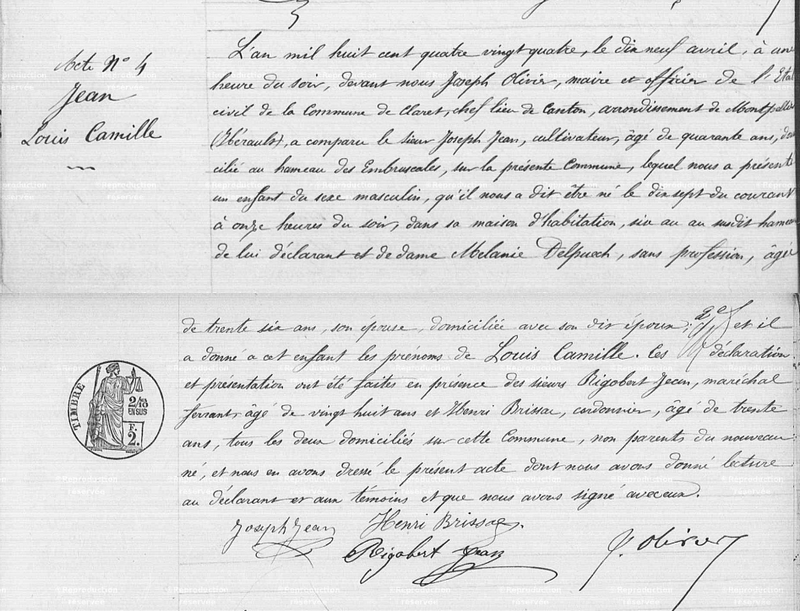 Acte N° 4
Jean
Louis Camille
L'an mil huit cent quatre vingt quatre, le dix neuf avril, à une
heure du soir, devant nous Joseph Olivier, maire et officier de l'Etat
civil de la Commune de Claret, chef lieu de Canton, arrondissement de Montpellier
(Hérault), a comparu le sieur Joseph Jean, cultivateur, âgé de quarante ans, domi
cilié au hameau des Embruscales, sur la présente Commune, lequel nous a présenté
un enfant du sexe masculin, qu'il nous a dit être né le dix sept du courant
à onze heures du soir, dans sa maison d'habitation, sise au au susdit hameau
de lui déclarant et de dame Mélanie Delpuech, sans profession, âgée
de trente six ans, son épouse, domiciliée avec son dit époux; et il
a donné a cet enfant les prénoms de Louis Camille. Ces déclaration
et présentation ont été faites en présence des sieurs Rigobert Jean, maréchal
ferrant, âgé de vingt huit ans et Henri Brissac, cordonnier, âgé de trente
ans, tous les deux domiciliés sur cette Commune, non parents du nouveau
né, et nous en avons dressé le présent acte dont nous avons donné lecture
au déclarant et aux témoins et que nous avons signé avec eux.
Joseph Jean Henri Brissac
Rigobert Jean J. Olivier
TIMBRE
2/10
EN SUS
F.
2.